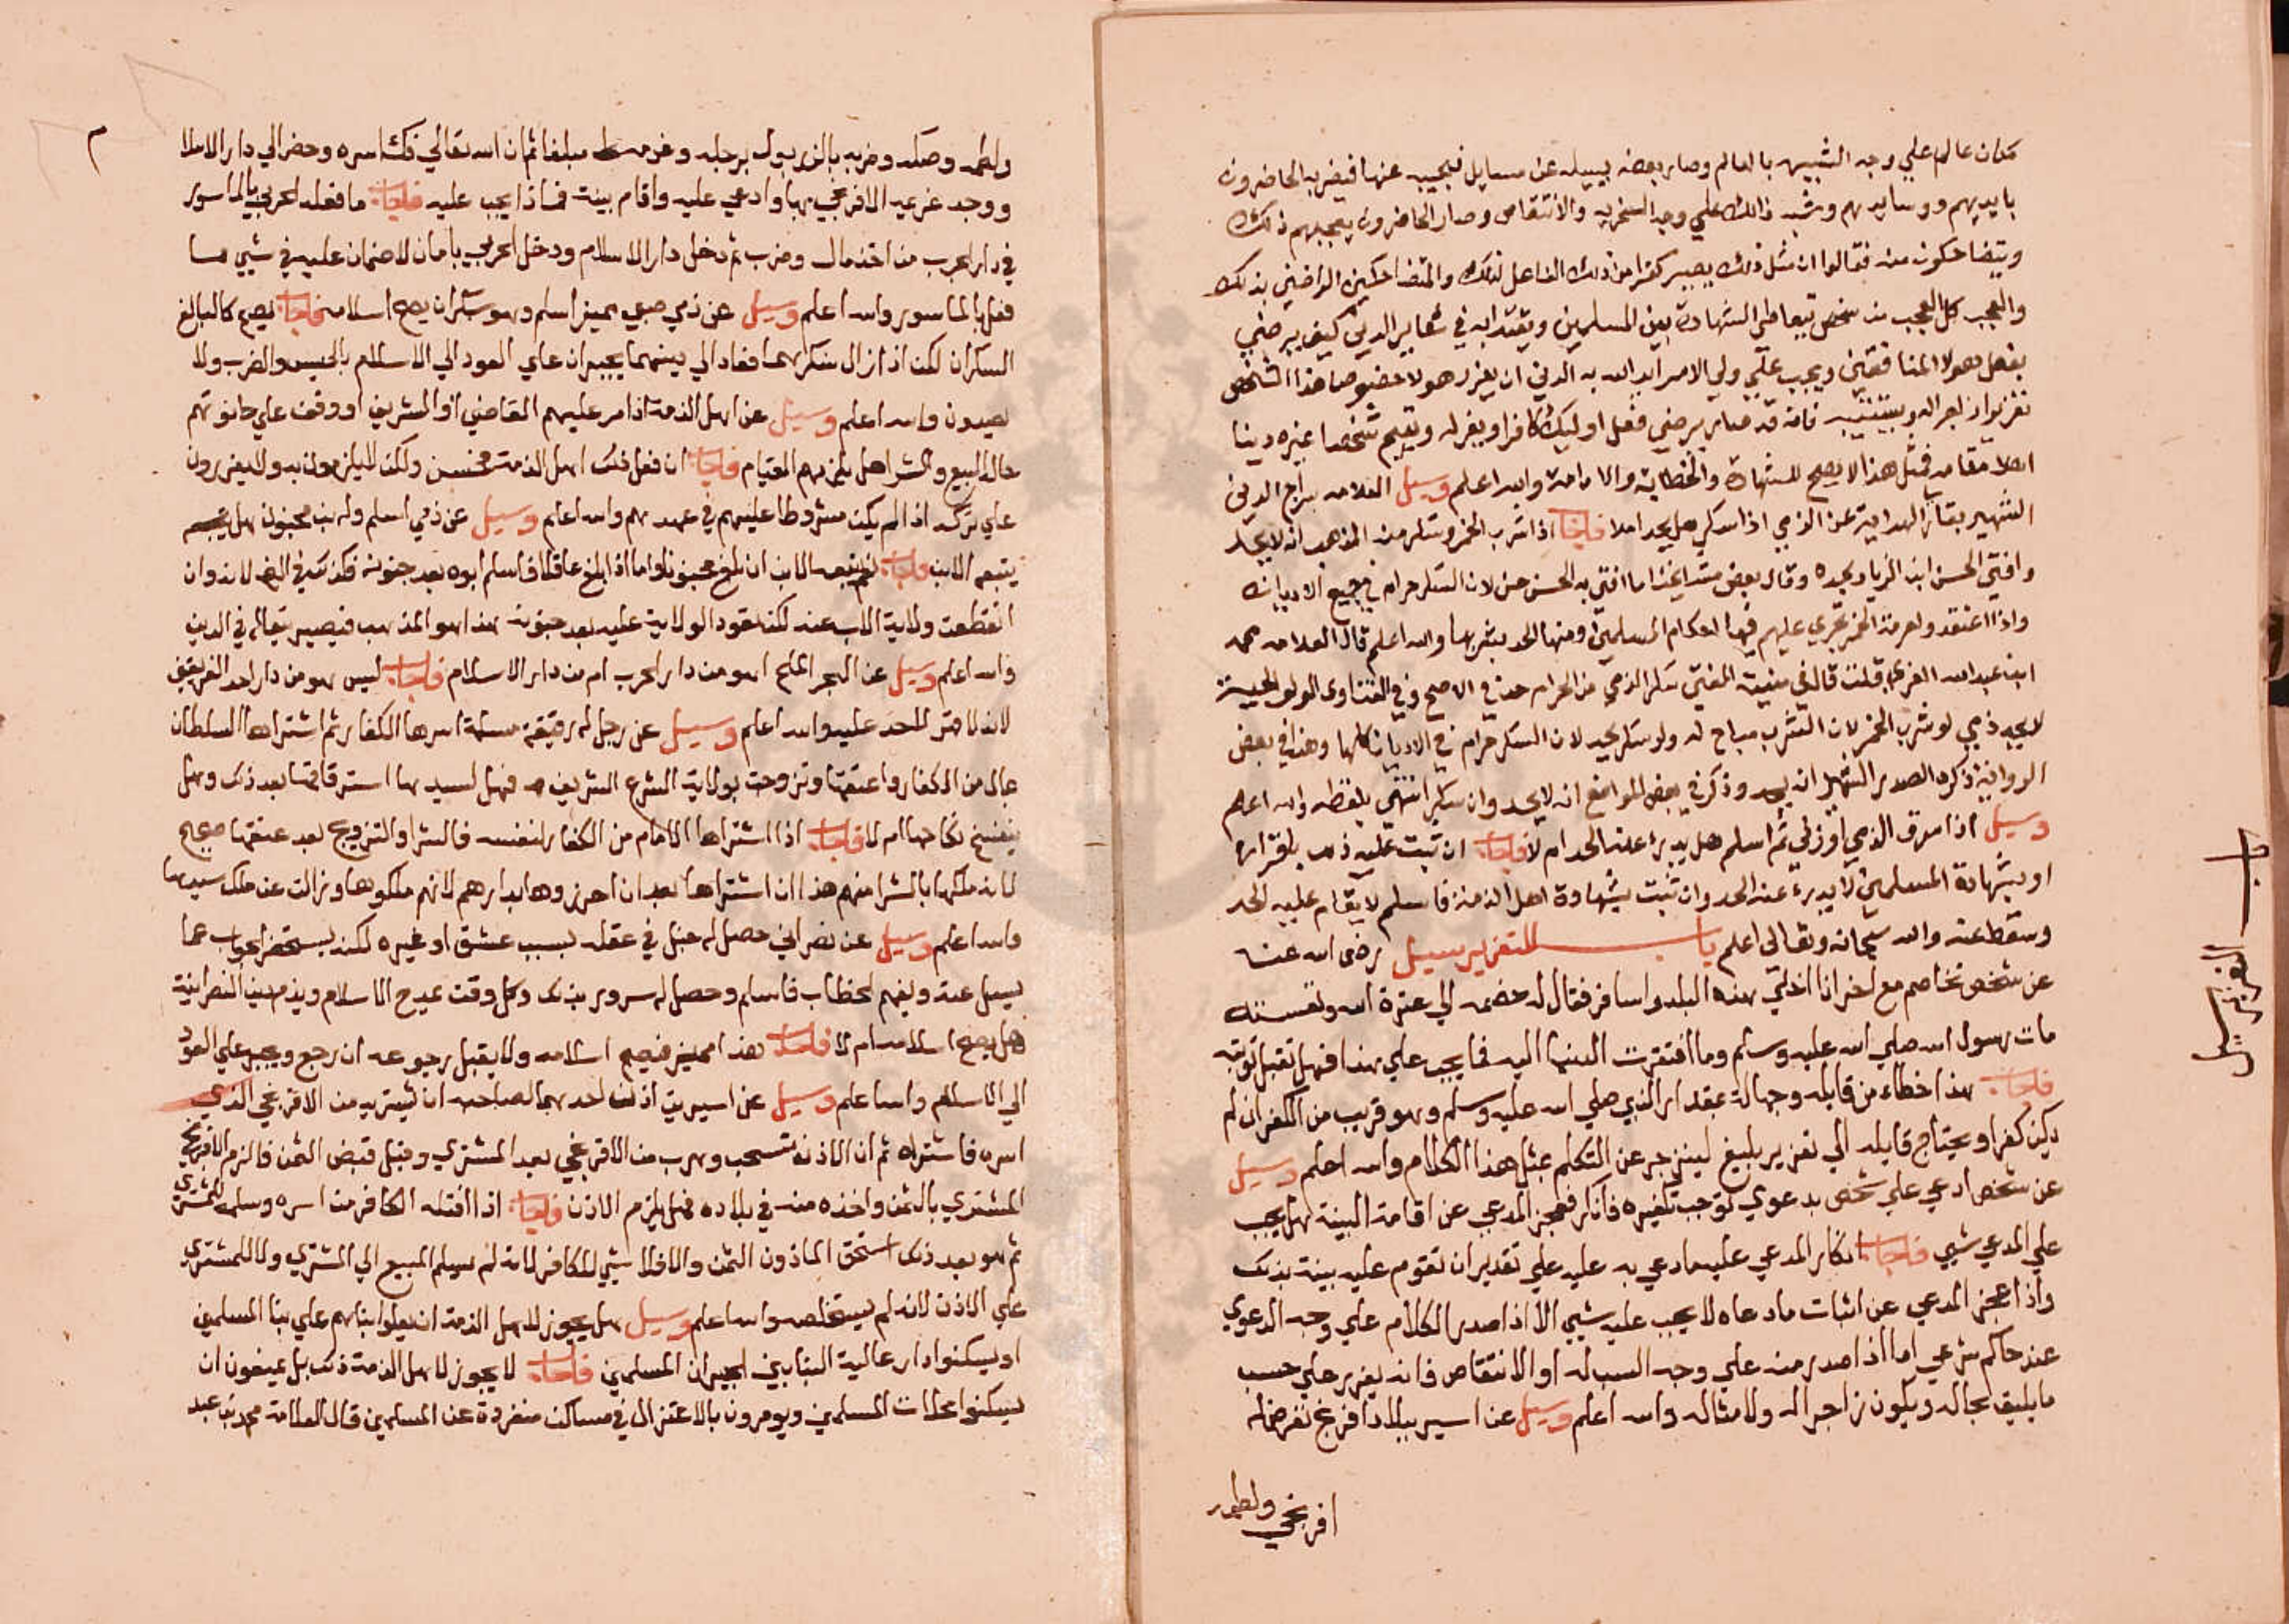 مكان عالم علي وجه التشبيه بالعالم وصار بعضه يسيله عن مسايل فيجيب عنها فيضربه الحاضرون
بايديهم ووسايدهم وشبه ذالك علي وجه السخريه والانتقاص وصار الحاضرون يعجبهم ذلك
ويتضاحكون منه فقالوا ان مثل ذلك يصير كفرا من ذلك الفاعل لذلك والمتضاحكين الراضين بذلك
والعجب كل العجب من شخص يتعاطي الشهادة بين المسلمين ويقتدا به في شعاير الدين كيف يرضي
بفعل هولا المنافقين ويجب علي ولي الامر ايد الله به الدين ان يعزر هولا خصوصا هذا الشخص
تعزيرا زاجرا له ويستتيبه فانه قد صار يرضي فعل اوليك كافرا ويغرله ويقيم شخصا غيره دينا
اهلا مقامه فمثل هذا لا يصح للشهادة والخطابة والامامة والله اعلم وسيل العلامه سراج الدين
الشهير بقارئ الهداية عن الذمي اذا سكر هل يحد ام لا فاجاب اذا شرب الخمر وسكر من المذهب انه لا يحد
وافتي الحسن ابن الزياد بحده وقال بعض مشايخنا ما افتي به الحسن حسن لان السكر حرام في جميع الاديان
واذا اعتقدوا حرمة الخمر تجري عليهم فيها احكام المسلمين ومنها الحد بشربها والله اعلم قال العلامه محمد
ابن عبد الله الغزي قلت قال في منية المفتي سكر الذمي من الحرام حد في الاصح وفي الفتاوى الولوالجية
لا يحد ذمي لو شرب الخمر لان الشرب مباح له ولو سكر يحد لان السكر حرام في الاديان كلها وهذا في بعض
الرواية ذكره الصدر الشهيد انه يحد وذكر في بعض المواضع انه لا يحد وان سكر انتهي بلفظه والله اعلم
وسيل اذا سرق الذمي او زني ثم اسلم هل يدرء عنه الحد ام لا فاجاب ان ثبت عليه ذلك باقراره
او بشهادة المسلمين لا يدرء عنه الحد وان ثبت بشهادة اهل الذمة فاسلم لا يقام عليه الحد
وسقط عنه والله سبحانه وتعالى اعلم باب التعزير سيل رضى الله عنه
عن شخص تخاصم مع اخر انا اخلي هذه البلد واسافر فقال له خصمه الي عترة الله وتفسته
مات رسول الله صلي الله عليه وسلم وما افتقرت الدنيا اليه فما يجب علي هذا فهل تقبل توبته
فاجاب هذا خطاء من قايله وجهالة بمقدار النبي صلي الله عليه وسلم وهو قريب من الكفر ان لم
يكن كفرا ويحتاج قايله الي تعزير بليغ لينزجر عن التكلم بمثل هذا الكلام والله اعلم وسيل
عن شخص ادعي علي شخص بدعوي توجب تكفيره فانكر فعجز المدعي عن اقامة البينة هل يجب
علي المدعي شيي فاجاب انكار المدعي عليه ما دعي به عليه علي تقدير ان تقوم عليه بينة بذلك
واذا عجز المدعي عن اثبات ما دعاه لا يجب عليه شيي الا اذا صدر الكلام علي وجه الدعوي
عند حاكم شرعي اما اذا صدر منه علي وجه السب له او الانتقاص فانه يعزر علي حسب
ما يليق بحاله ويكون زاجرا له ولامثاله والله اعلم وسيل عن اسير ببلاد افرنج تعرض له
افرنجي ولطمه
التعزير سيل
ولطمه وصكه وضربه بالزربول برجله وغرمه مبلغا ثم ان الله تعالي فك اسره وحضر الي دار الاسلا
ووجد غريمه الافرنجي بها وادعي عليه واقام بينة فماذا يجب عليه فاجاب ما فعله الحربي بالماسور
في دار الحرب من اخذ مال وضرب ثم دخل دار الاسلام ودخل الحربي بامان لا ضمان عليه في شيي مما
فعل بالماسور والله اعلم وسيل عن ذمي صبي مميز اسلم وهو سكران يصح اسلامه فاجاب يصح كالبالغ
السكران لكن اذا زال سكرهما فعادا الي دينهما يجبران علي العود الي الاسلام بالحبس والضرب ولا
يصيدون والله اعلم وسيل عن اهل الذمة اذا مر عليهم القاضي او الشريف او وقف علي حانوتهم
حالة البيع والشرا هل يلزمهم القيام فاجاب ان فعل ذلك اهل الذمة فحسن ولكن لا يلزمون به ولا يعزرون
علي تركه اذا لم يكن مشروطا عليهم في عهدهم والله اعلم وسيل عن ذمي اسلم وله ابن مجنون هل
يتبعه الابن فاجاب نعم يتبعه الابن ان بلغ مجنونا واما اذا بلغ عاقلا فاسلم ابوه بعد جنونه فكذلك في الاصح لانه وان
انقطعت ولاية الاب عنه لكن تعود الولاية عليه بعد جنونه هذا هو المذهب فيصير تبعا له في الدين
والله اعلم وسيل عن البحر الملح اهو من دار الحرب ام من دار الاسلام فاجاب ليس هو من دار احد الفريقين
لانه لا قهر لاحد عليه والله اعلم وسيل عن رجل له رقيقة مسلمة اسرها الكفار ثم اشتراها السلطان
بماله من الكفار واعتقها وتزوجت بولاية الشرع الشريف فهل لسيدها استرقاقها بعد ذلك وهل
ينفسخ نكاحها ام لا فاجاب اذا اشتراها الامام من الكفار لنفسه فالشرا والتزويج بعد عتقها صحيح
لانه ملكها بالشرا منهم هذا ان اشتراها بعد ان احرزوها بدارهم لانهم ملكوها وزالت عن ملك سيدها
والله اعلم وسيل عن نصراني حصل له خبل في عقله بسبب عشق او غيره لكنه يستحضر الجواب عما
يسيل عنه ويفهم الخطاب فاسلم وحصل له سرور بذلك وكل وقت يمدح الاسلام ويذم دين النصرانية
هل يصح اسلامه ام لا فاجاب هذا مميز فيصح اسلامه ولا يقبل رجوعه ان رجع ويجبر علي العود
الي الاسلام والله اعلم وسيل عن اسيرين اذن احدهما لصاحبه ان يشتريه من الافرنجي الذي
اسره فاشتراه ثم ان الاذن تسحب وهرب من الافرنجي بعد المشتري وقبل قبض الثمن فالزم الافرنجي
المشتري بالثمن واخذه منه في بلاده فهل يلزم الاذن فاجاب اذا افتكه الكافر من اسره وسلمه للمشتري
ثم هو بعد ذلك استحق الماذون الثمن والا فلا شيي للكافر لانه لم يسلم المبيع الي المشتري ولا للمشتري
علي الاذن لانه لم يستخلصه والله اعلم وسيل هل يجوز لاهل الذمة ان يعلوا بناهم علي بنا المسلمين
او يسكنوا دار عالية البنا بين الجيران المسلمين فاجاب لا يجوز لاهل الذمة ذلك بل يمنعون ان
يسكنوا محلات المسلمين ويومرون بالاعتزال في مساكن منفردة عن المسلمين قال العلامة محمد بن عبد